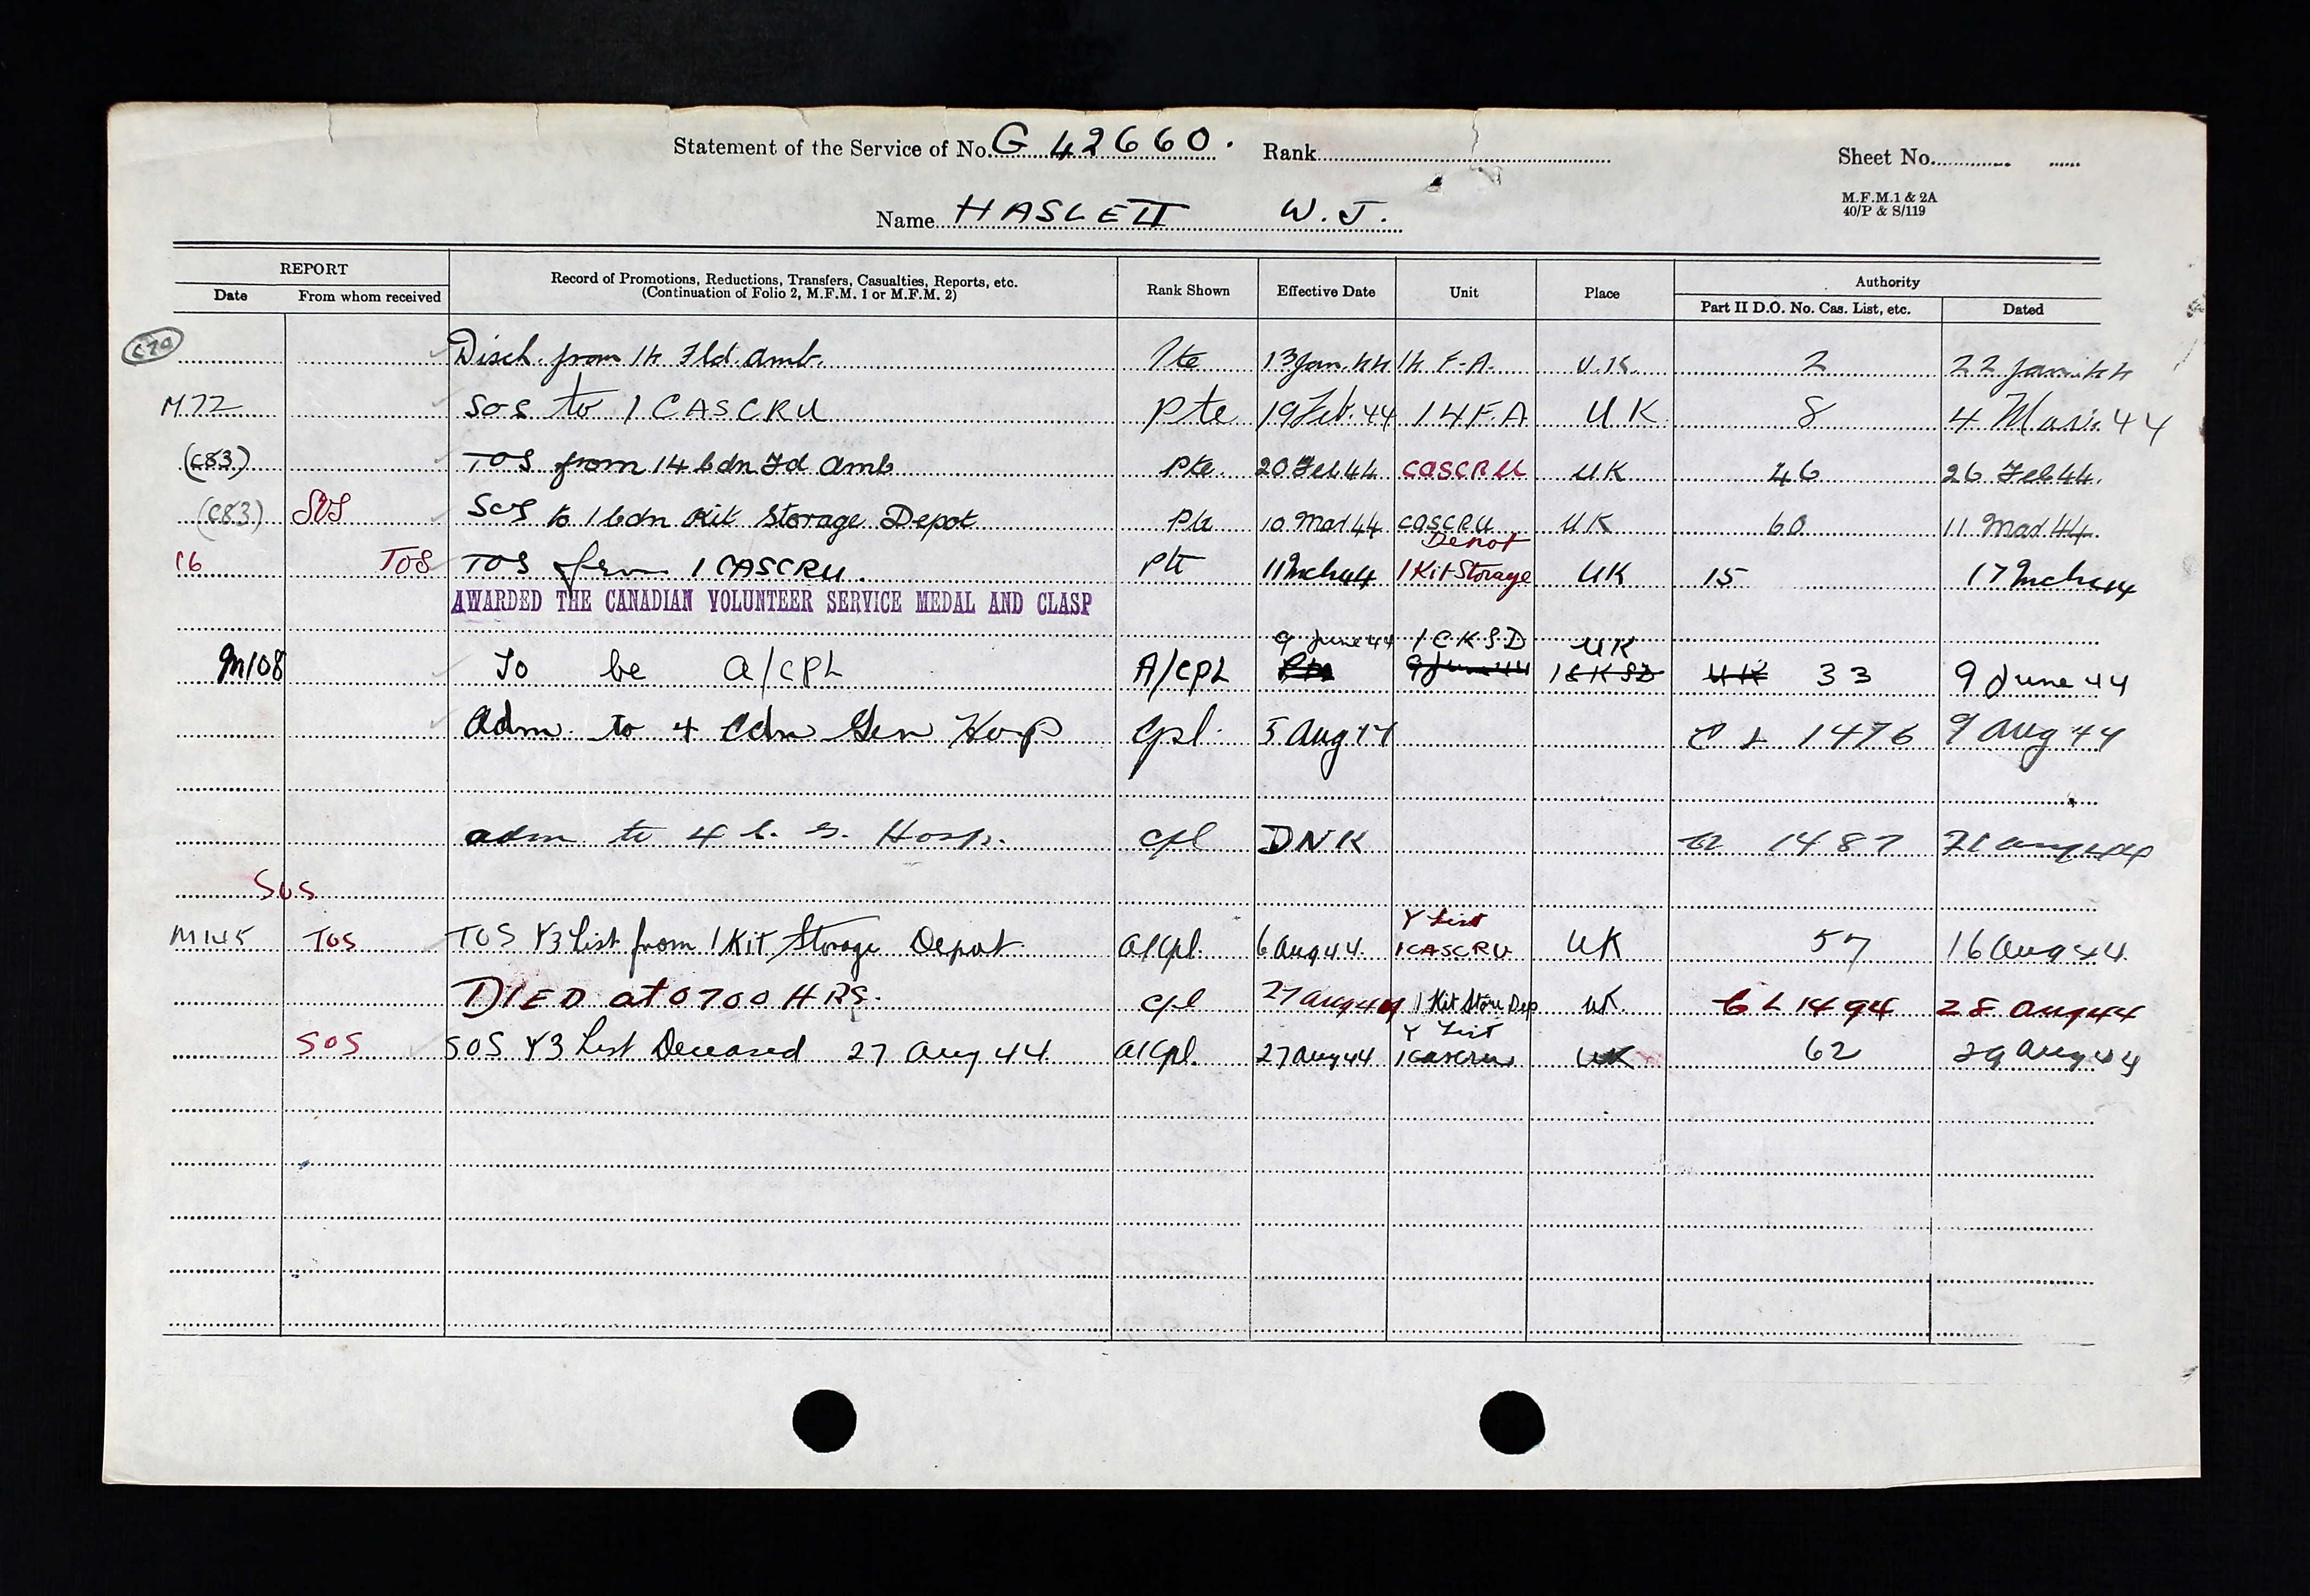 Statement of the Service of No. G 42660. Rank Sheet No.
M.F.M.1 & 2A
40/P & S/119
Name HASLETT W. J.
REPORT Record of Promotions, Reductions, Transfers, Casualties, Reports, etc. Rank Shown Effective Date Unit Place Authority
Date From whom received (Continuation of Folio 2, M.F.M. 1 or M.F.M. 2) Part II D.O. No. Cas. List, etc. Dated
Disch. from 14 Fld. Amb. Pte 13 Jan. 44 14 F.A. U.K. 2 22 Jan. 44
M72 SOS to 1 CASCRU Pte 19 Feb. 44 14 F.A UK 8 4 Mar. 44
(C83) TOS from 14 Cdn Fd Amb Pte. 20 Feb 44 CASCRU UK 46 26 Feb 44.
(C83) SOS SOS to 1 Cdn Kit Storage Depot Pte 10 Mar 44 CASCRU UK 60 11 Mar 44.
Depot
C6 TOS TOS from 1 CASCRU. Pte 11 Mch 44 1 Kit Storage UK 15 17 Mch 44
AWARDED THE CANADIAN VOLUNTEER SERVICE MEDAL AND CLASP
9 June 44 1 C K S D UK
M108 To be A/CPL A/CPL Pte 9 June 44 1 C K S D UK 33 9 June 44
Adm. to 4 Cdn Gen Hosp Cpl. 5 Aug 44 C L 1476 9 Aug 44
adm to 4 C. G. Hosp. Cpl DNK CL 1487 21 Aug 44
SOS
Y List
M145 TOS TOS Y3 List from 1 Kit Storage Depot. A/Cpl. 6 Aug 44. 1 CASCRU UK 57 16 Aug 44.
DIED at 0700 HRS. Cpl 27 Aug 44 1 Kit Store Dep UK C L 1494 28 Aug 44
Y List
SOS SOS Y3 List Deceased 27 Aug 44 A/Cpl. 27 Aug 44 1 CASCRU UK 62 29 Aug 44